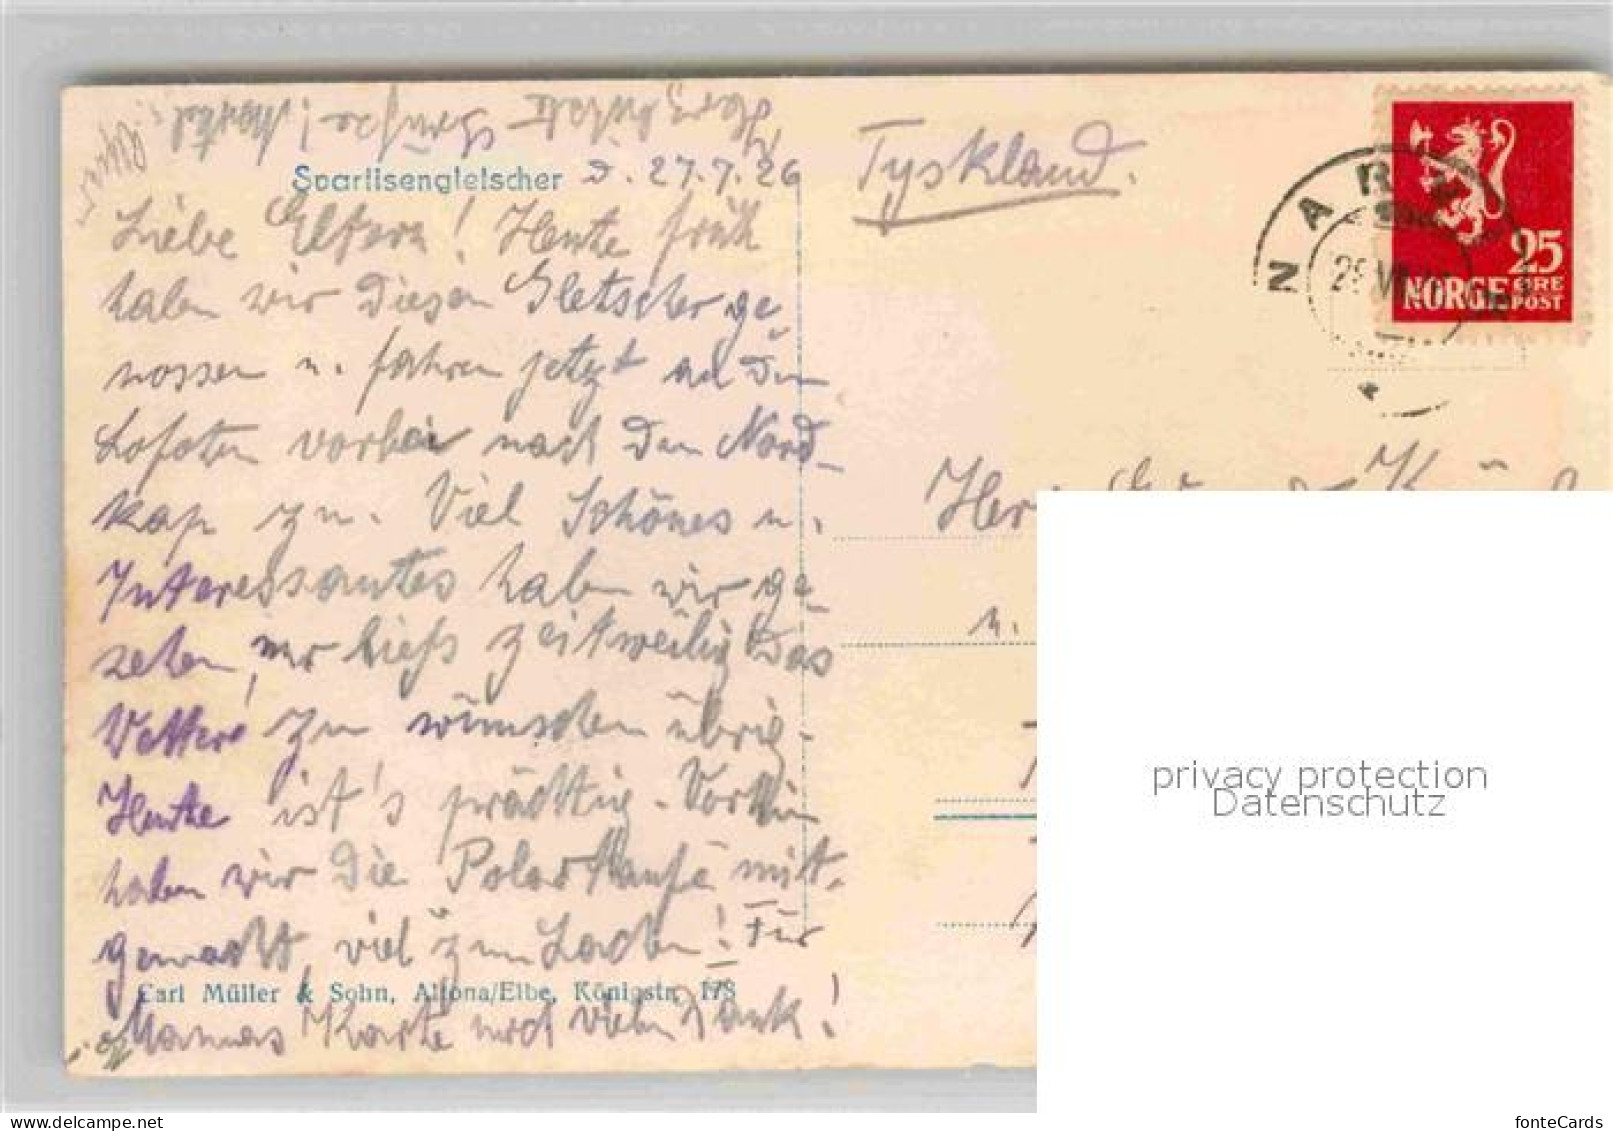 Herzlichste Grüsse!
Svartisengletscher d. 27.7.26
Liebe Eltern! Heute früh
haben wir diesen Gletscher ge-
nossen u. fahren jetzt an den
Lofoten vorbei nach dem Nord-
kap zu. Viel Schönes u.
Interessantes haben wir ge-
sehen, nur liess zeitweilig das
Wetter zu wünschen übrig.
Heute ist's prächtig. Vorhin
haben wir die Polartaufe mit-
gemacht, viel zum Lachen! Für
Carl Müller & Sohn, Altona/Elbe, Königstr. 178
Mamas Karte noch vielen Dank!
Tyskland.
NARVIK
25
NORGE ØRE
POST
Her
u.
privacy protection
Datenschutz
fonteCards